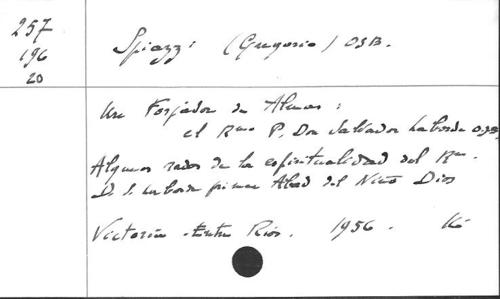 257
196
20
Spiazzi (Gregorio) OSB.
Un Forjador de Almas:
el Rmo P. Don Salvador Laborde OSB.
Algunos rasgos de la espiritualidad del Rmo
D. S. Laborde primer Abad del Niño Dios
Victoria - Entre Rios. 1956.